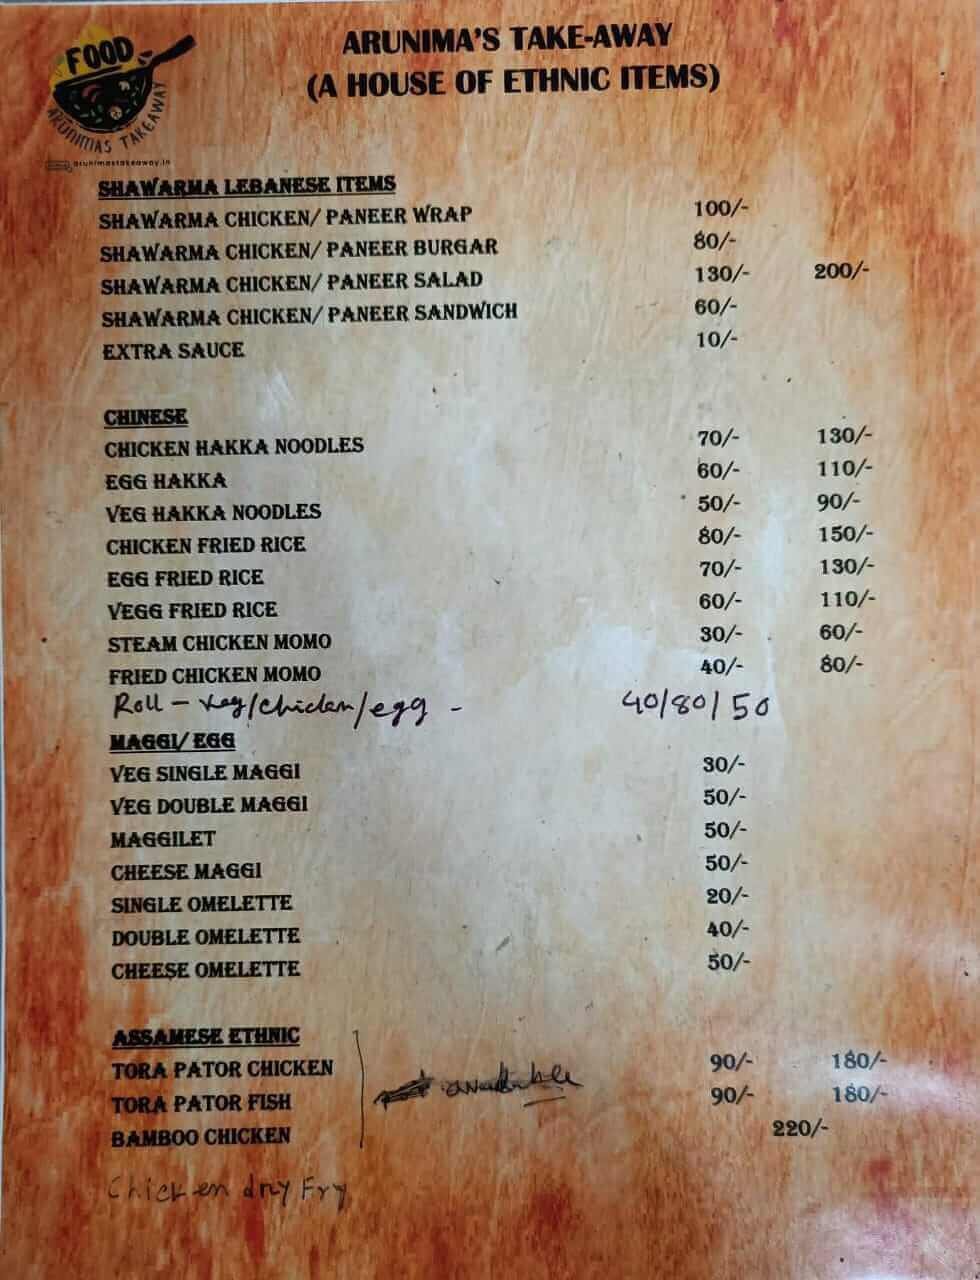 FOOD
ARUNIMAS TAKEAWAY
arunimastakeaway.in
ARUNIMA'S TAKE-AWAY
(A HOUSE OF ETHNIC ITEMS)
SHAWARMA LEBANESE ITEMS
SHAWARMA CHICKEN/ PANEER WRAP 100/-
SHAWARMA CHICKEN/ PANEER BURGAR 80/-
SHAWARMA CHICKEN/ PANEER SALAD 130/- 200/-
SHAWARMA CHICKEN/ PANEER SANDWICH 60/-
EXTRA SAUCE 10/-
CHINESE
CHICKEN HAKKA NOODLES 70/- 130/-
EGG HAKKA 60/- 110/-
VEG HAKKA NOODLES 50/- 90/-
CHICKEN FRIED RICE 80/- 150/-
EGG FRIED RICE 70/- 130/-
VEGG FRIED RICE 60/- 110/-
STEAM CHICKEN MOMO 30/- 60/-
FRIED CHICKEN MOMO 40/- 80/-
Roll - veg/chicken/egg - 40/80/50
MAGGI/ EGG
VEG SINGLE MAGGI 30/-
VEG DOUBLE MAGGI 50/-
MAGGILET 50/-
CHEESE MAGGI 50/-
SINGLE OMELETTE 20/-
DOUBLE OMELETTE 40/-
CHEESE OMELETTE 50/-
ASSAMESE ETHNIC
TORA PATOR CHICKEN 90/- 180/-
available
TORA PATOR FISH 90/- 180/-
BAMBOO CHICKEN 220/-
Chicken dry Fry